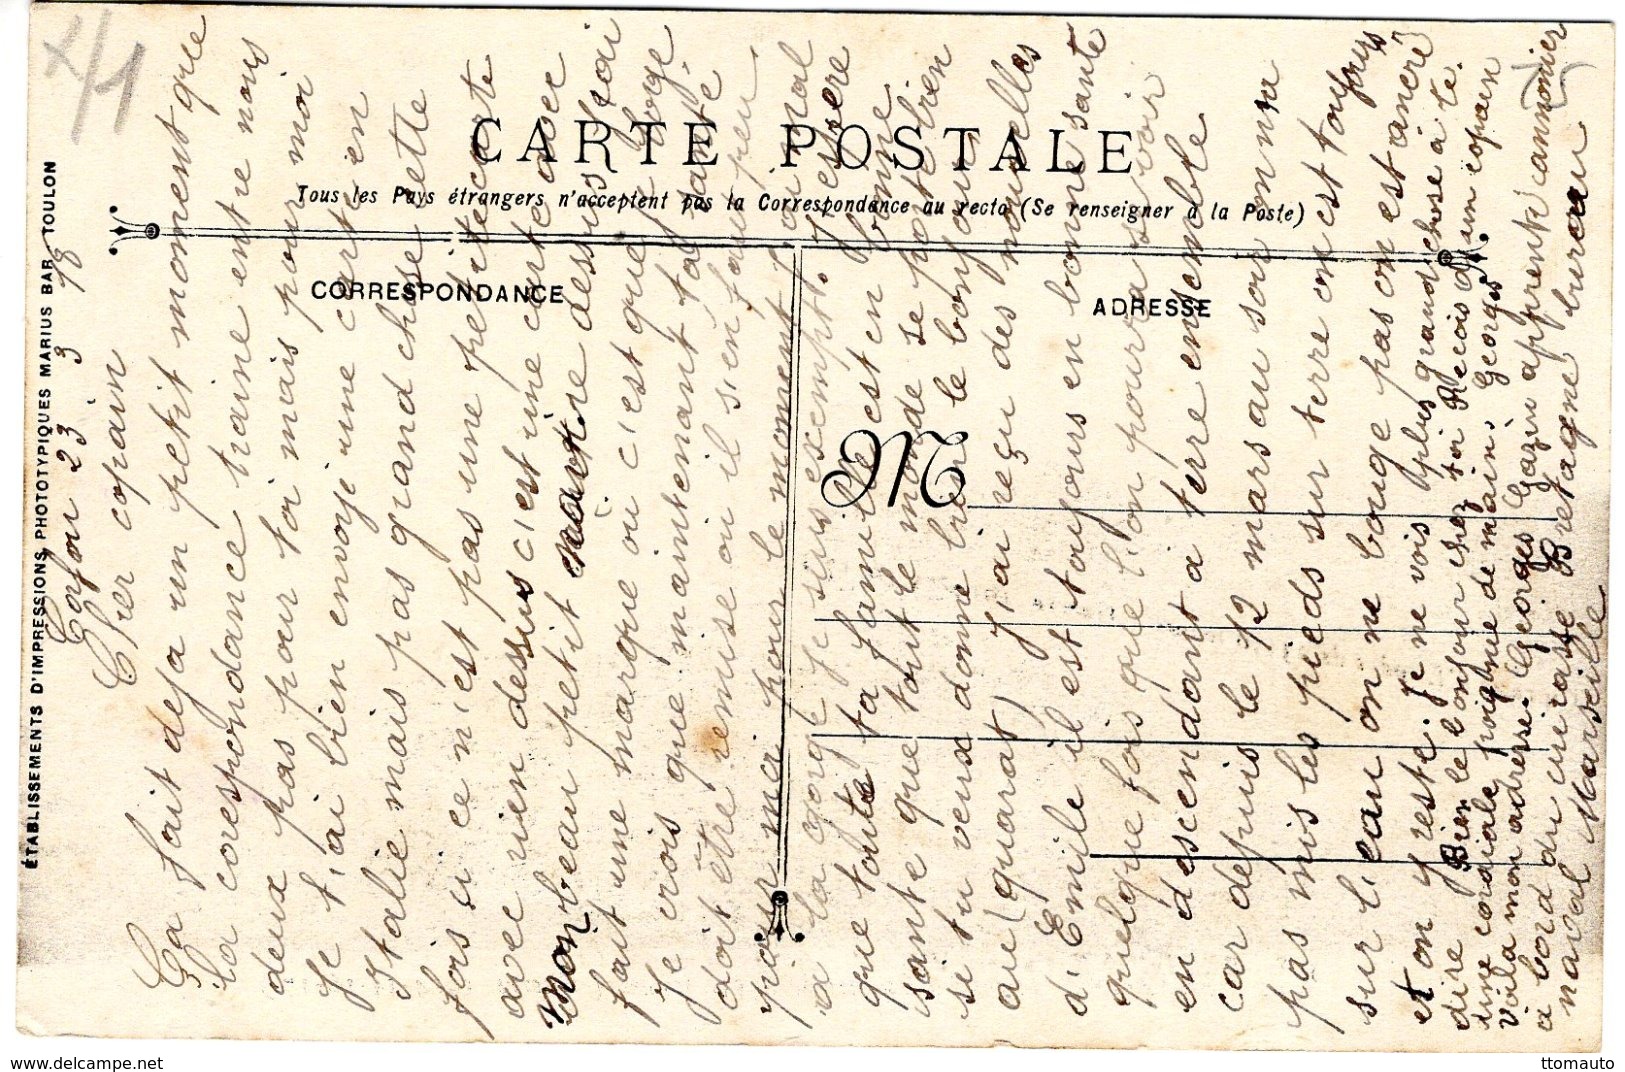 CARTE POSTALE
Tous les Pays étrangers n'acceptent pas la Correspondance au recto (Se renseigner à la Poste)
CORRESPONDANCE
ADRESSE
M
ÉTABLISSEMENTS D'IMPRESSIONS PHOTOTYPIQUES MARIUS BAR, TOULON
Corfou 23 3 18
Cher copain
Ca fait deja un petit moment que
la corespondance traine entre nous
deux pas pour toi mais pour moi
Je t'ai bien envoyé une carte en
Italie mais pas grand chose cette
fois si ce n'est pas une petite carte
avec rien dessus c'est une carte avec
mon beau petit dessus
fait une marque où c'est que je loge
Je crois que maintenant ta santé
doit être remise ou il s'en faut peu
pour moi pour le moment j'ai mal
a la gorge je suis exempt. J'espère
que toute ta famille est en bonne
sante que tout le monde se porte bien
si tu veux donne bien le bonjour
au (quarat) J'ai reçu des nouvelles
d'Emile il est toujours en bonne santé
quelque fois que l'on pourra se voir
en descendant a terre ensemble
car depuis le 12 mars au soir on n'a
pas mis les pieds sur terre on est toujours
sur l'eau on ne bouge pas on est ancré
et on y reste. Je ne vois plus grand chose à te
dire Bien le bonjour chez toi Recois d'un copain
une cordiale poigne de main. Georges
Voila mon adresse. Georges Gazu apprenti cannonier
a bord du cuirassé Bretagne bureau
naval Marseille
ttomauto